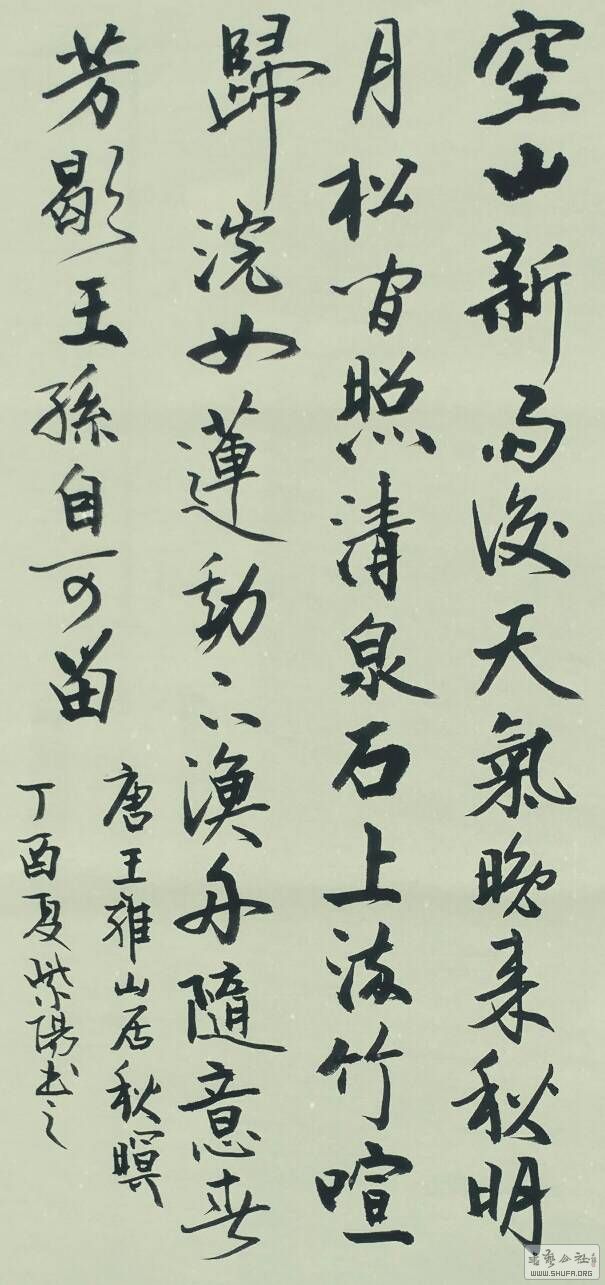 空山新雨後天氣晚来秋明
月松间照清泉石上流竹喧
歸浣女蓮動下漁舟隨意春
芳歇王孫自可留
唐王維山居秋暝
丁酉夏紫陽书之
WWW.SHUFA.ORG